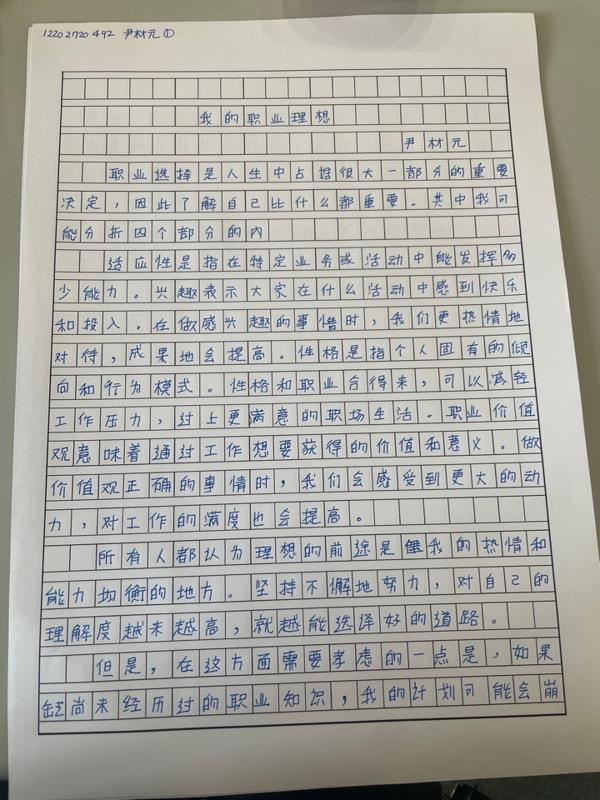 12202720492 尹材元①
我的职业理想
尹材元
职业选择是人生中占据很大一部分的重要
决定，因此了解自己比什么都重要。其中我可
能分折四个部分的内
适应性是指在特定业务或活动中能发挥多
少能力。兴趣表示大家在什么活动中感到快乐
和投入。在做感兴趣的事情时，我们更热情地
对待，成果地会提高。性格是指个人固有的倾
向和行为模式。性格和职业合得来，可以减轻
工作压力，过上更满意的职场生活。职业价值
观意味着通过工作想要获得的价值和意义。做
价值观正确的事情时，我们会感受到更大的动
力，对工作的满度也会提高。
所有人都认为理想的前途是我的热情和
能力均衡的地方。坚持不懈地努力，对自己的
理解度越来越高，就越能选译好的道路。
但是，在这方面需要考虑的一点是，如果
尚未经历过的职业知识，我的计划可能会崩